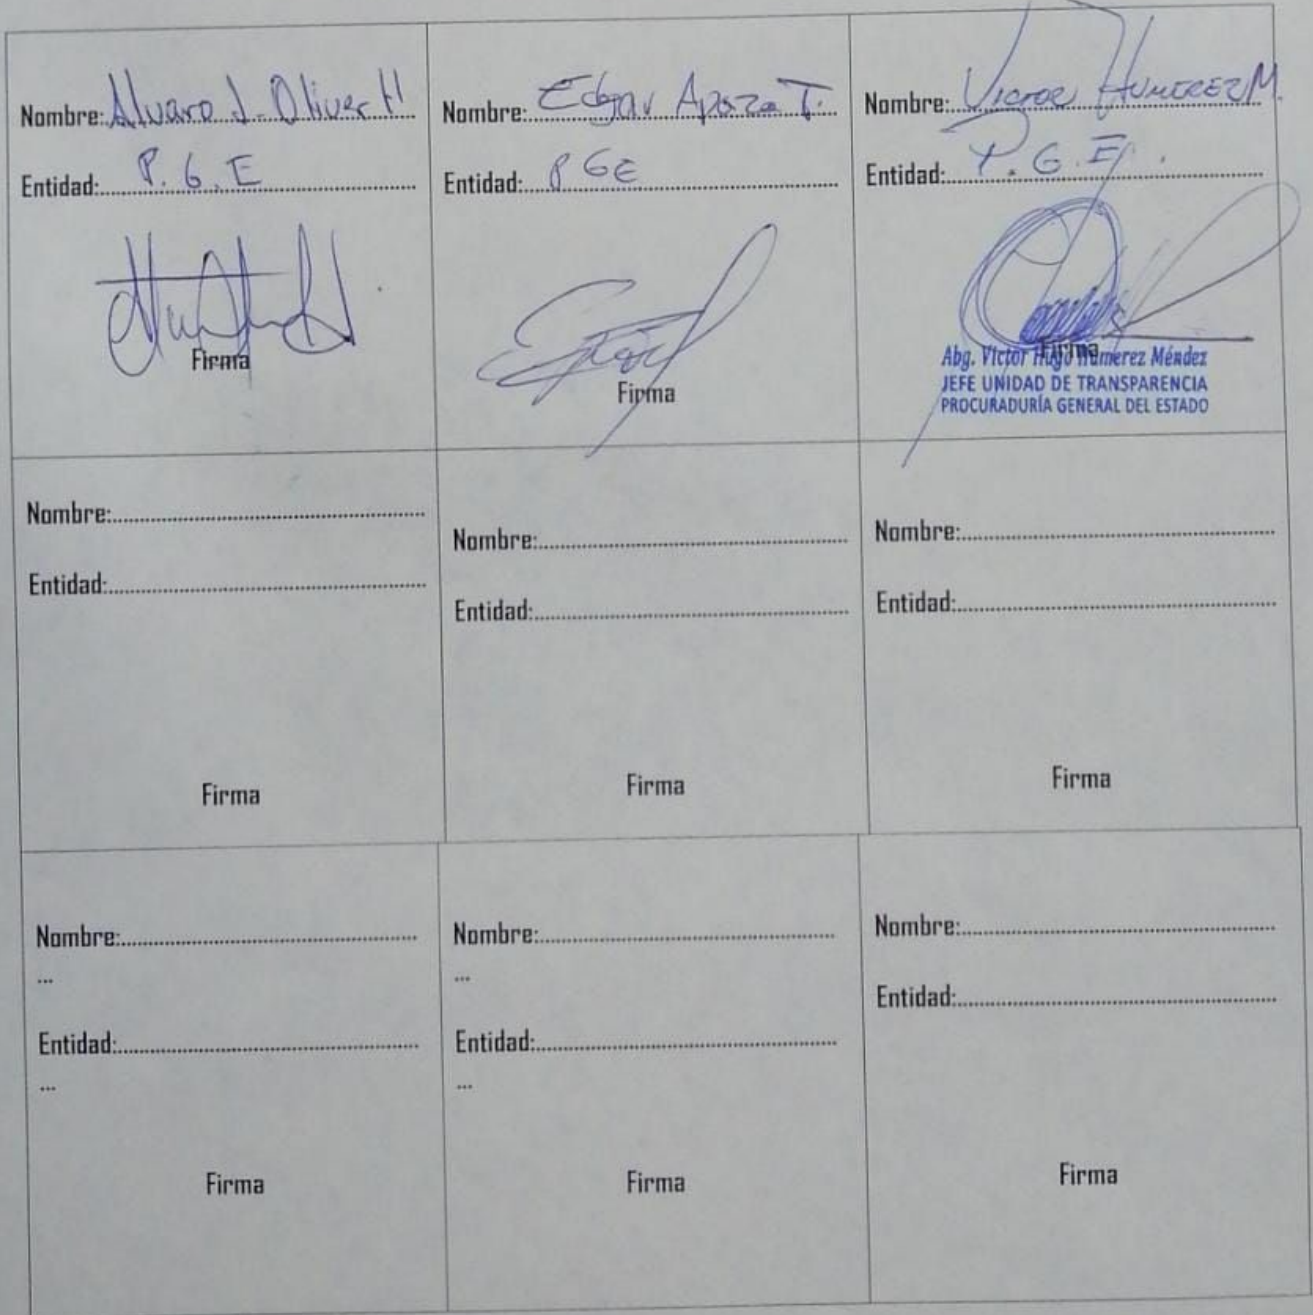 Nombre: Alvaro J. Oliver H
Entidad: P. G. E
Firma
Nombre: Edgar Apaza T.
Entidad: PGE
Firma
Nombre: Victor Humerez M.
Entidad: P. G. E.
Firma
Abg. Victor Hugo Humerez Méndez
JEFE UNIDAD DE TRANSPARENCIA
PROCURADURÍA GENERAL DEL ESTADO
Nombre:
Entidad:
Firma
Nombre:
Entidad:
Firma
Nombre:
Entidad:
Firma
Nombre:
...
Entidad:
...
Firma
Nombre:
...
Entidad:
...
Firma
Nombre:
Entidad:
Firma